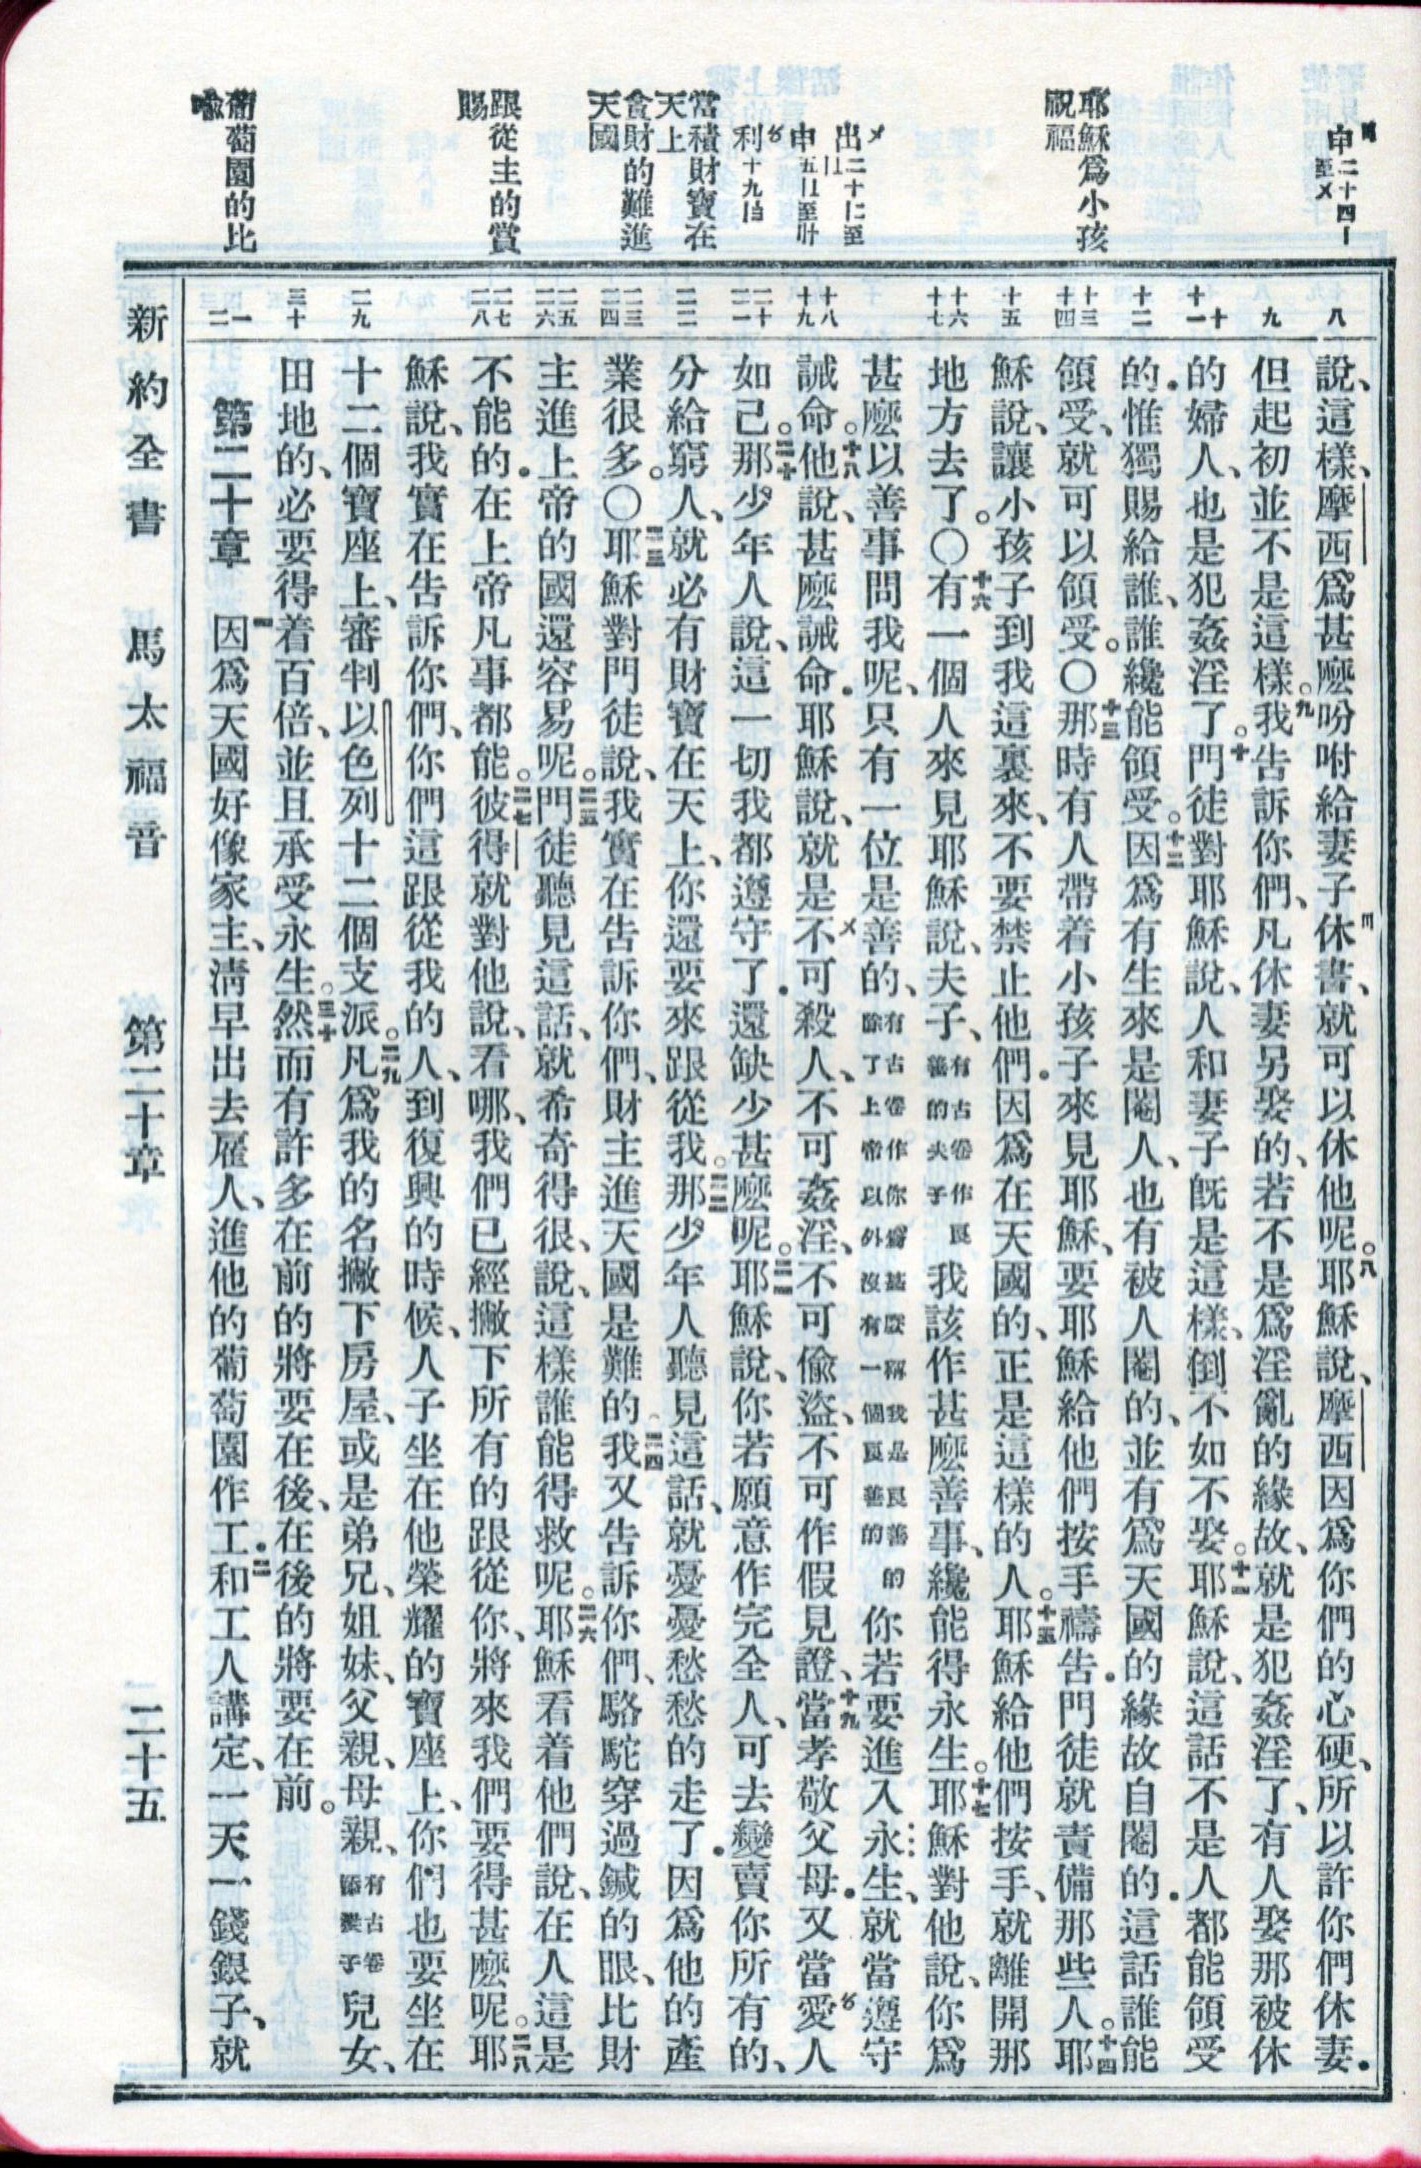 申二十四
耶穌爲小孩
祝福
出二十
申五
利十九
當積財寶在
天上
貪財的難進
天國
跟從主的賞
賜
葡萄園的比
喩
八
九
十
十一
十二
十三
十四
十五
十六
十七
十八
十九
二十
二一
二二
二三
二四
二五
二六
二七
二八
二九
三十
一
二
說、這樣、摩西爲甚麼吩咐給妻子休書、就可以休他呢。八耶穌說、摩西因爲你們的心硬、所以許你們休妻.
但起初並不是這樣。九我告訴你們、凡休妻另娶的、若不是爲淫亂的緣故、就是犯姦淫了、有人娶那被休
的婦人、也是犯姦淫了。十門徒對耶穌說、人和妻子旣是這樣、倒不如不娶。十一耶穌說、這話不是人都能領受
的.惟獨賜給誰、誰纔能領受。十二因爲有生來是閹人、也有被人閹的、並有爲天國的緣故自閹的.這話誰能
領受、就可以領受。〇十三那時有人帶着小孩子來見耶穌、要耶穌給他們按手禱告.門徒就責備那些人。十四耶
穌說、讓小孩子到我這裏來、不要禁止他們.因爲在天國的、正是這樣的人。十五耶穌給他們按手、就離開那
地方去了。〇十六有一個人來見耶穌說、夫子、有古卷作良善的夫子我該作甚麼善事、纔能得永生。十七耶穌對他說、你爲
甚麼以善事問我呢、只有一位是善的、有古卷作你爲甚麼稱我是良善的除了上帝以外沒有一個良善的你若要進入永生、就當遵守
誡命。十八他說、甚麼誡命.耶穌說、就是不可殺人、不可姦淫、不可偷盜、不可作假見證、十九當孝敬父母.又當愛人
如己。二十那少年人說、這一切我都遵守了.還缺少甚麼呢。二一耶穌說、你若願意作完全人、可去變賣你所有的、
分給窮人、就必有財寶在天上、你還要來跟從我。二二那少年人聽見這話、就憂憂愁愁的走了.因爲他的產
業很多。〇二三耶穌對門徒說、我實在告訴你們、財主進天國是難的。二四我又告訴你們、駱駝穿過鍼的眼、比財
主進上帝的國還容易呢。二五門徒聽見這話、就希奇得很、說、這樣誰能得救呢。二六耶穌看着他們說、在人這是
不能的.在上帝凡事都能。二七彼得就對他說、看哪、我們已經撇下所有的跟從你、將來我們要得甚麼呢。二八耶
穌說、我實在告訴你們、你們這跟從我的人、到復興的時候、人子坐在他榮耀的寶座上、你們也要坐在
十二個寶座上、審判以色列十二個支派。二九凡爲我的名撇下房屋、或是弟兄、姐妹、父親、母親、有古卷添妻子兒女、
田地的、必要得着百倍、並且承受永生。三十然而有許多在前的將要在後、在後的將要在前。
第二十章 一因爲天國好像家主、淸早出去雇人、進他的葡萄園作工.二和工人講定、一天一錢銀子、就
新約全書 馬太福音 第二十章 二十五